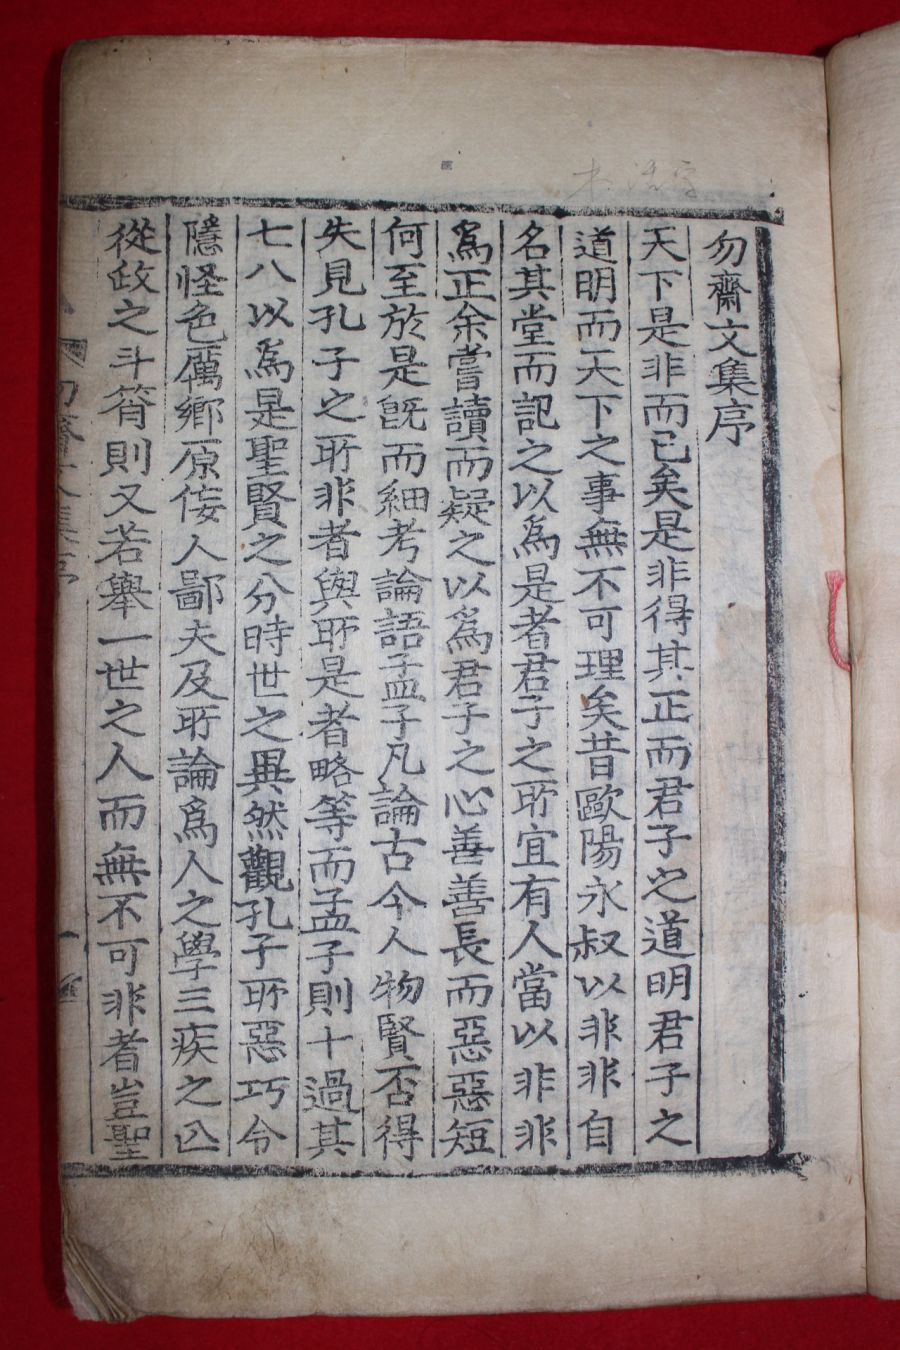 勿齋文集序
天下是非而已矣是非得其正而君子之道明君子之
道明而天下之事無不可理矣昔歐陽永叔以非非自
名其堂而記之以爲是者君子之所宜有人當以非非
爲正余嘗讀而疑之以爲君子之心善善長而惡惡短
何至於是旣而細考論語孟子凡論古今人物賢否得
失見孔子之所非者與所是者略等而孟子則十過其
七八以爲是聖賢之分時世之異然觀孔子所惡巧令
隱怪色厲鄉原侫人鄙夫及所論爲人之學三疾之亾
從政之斗筲則又若擧一世之人而無不可非者豈聖
勿齋文集序
一
木活字